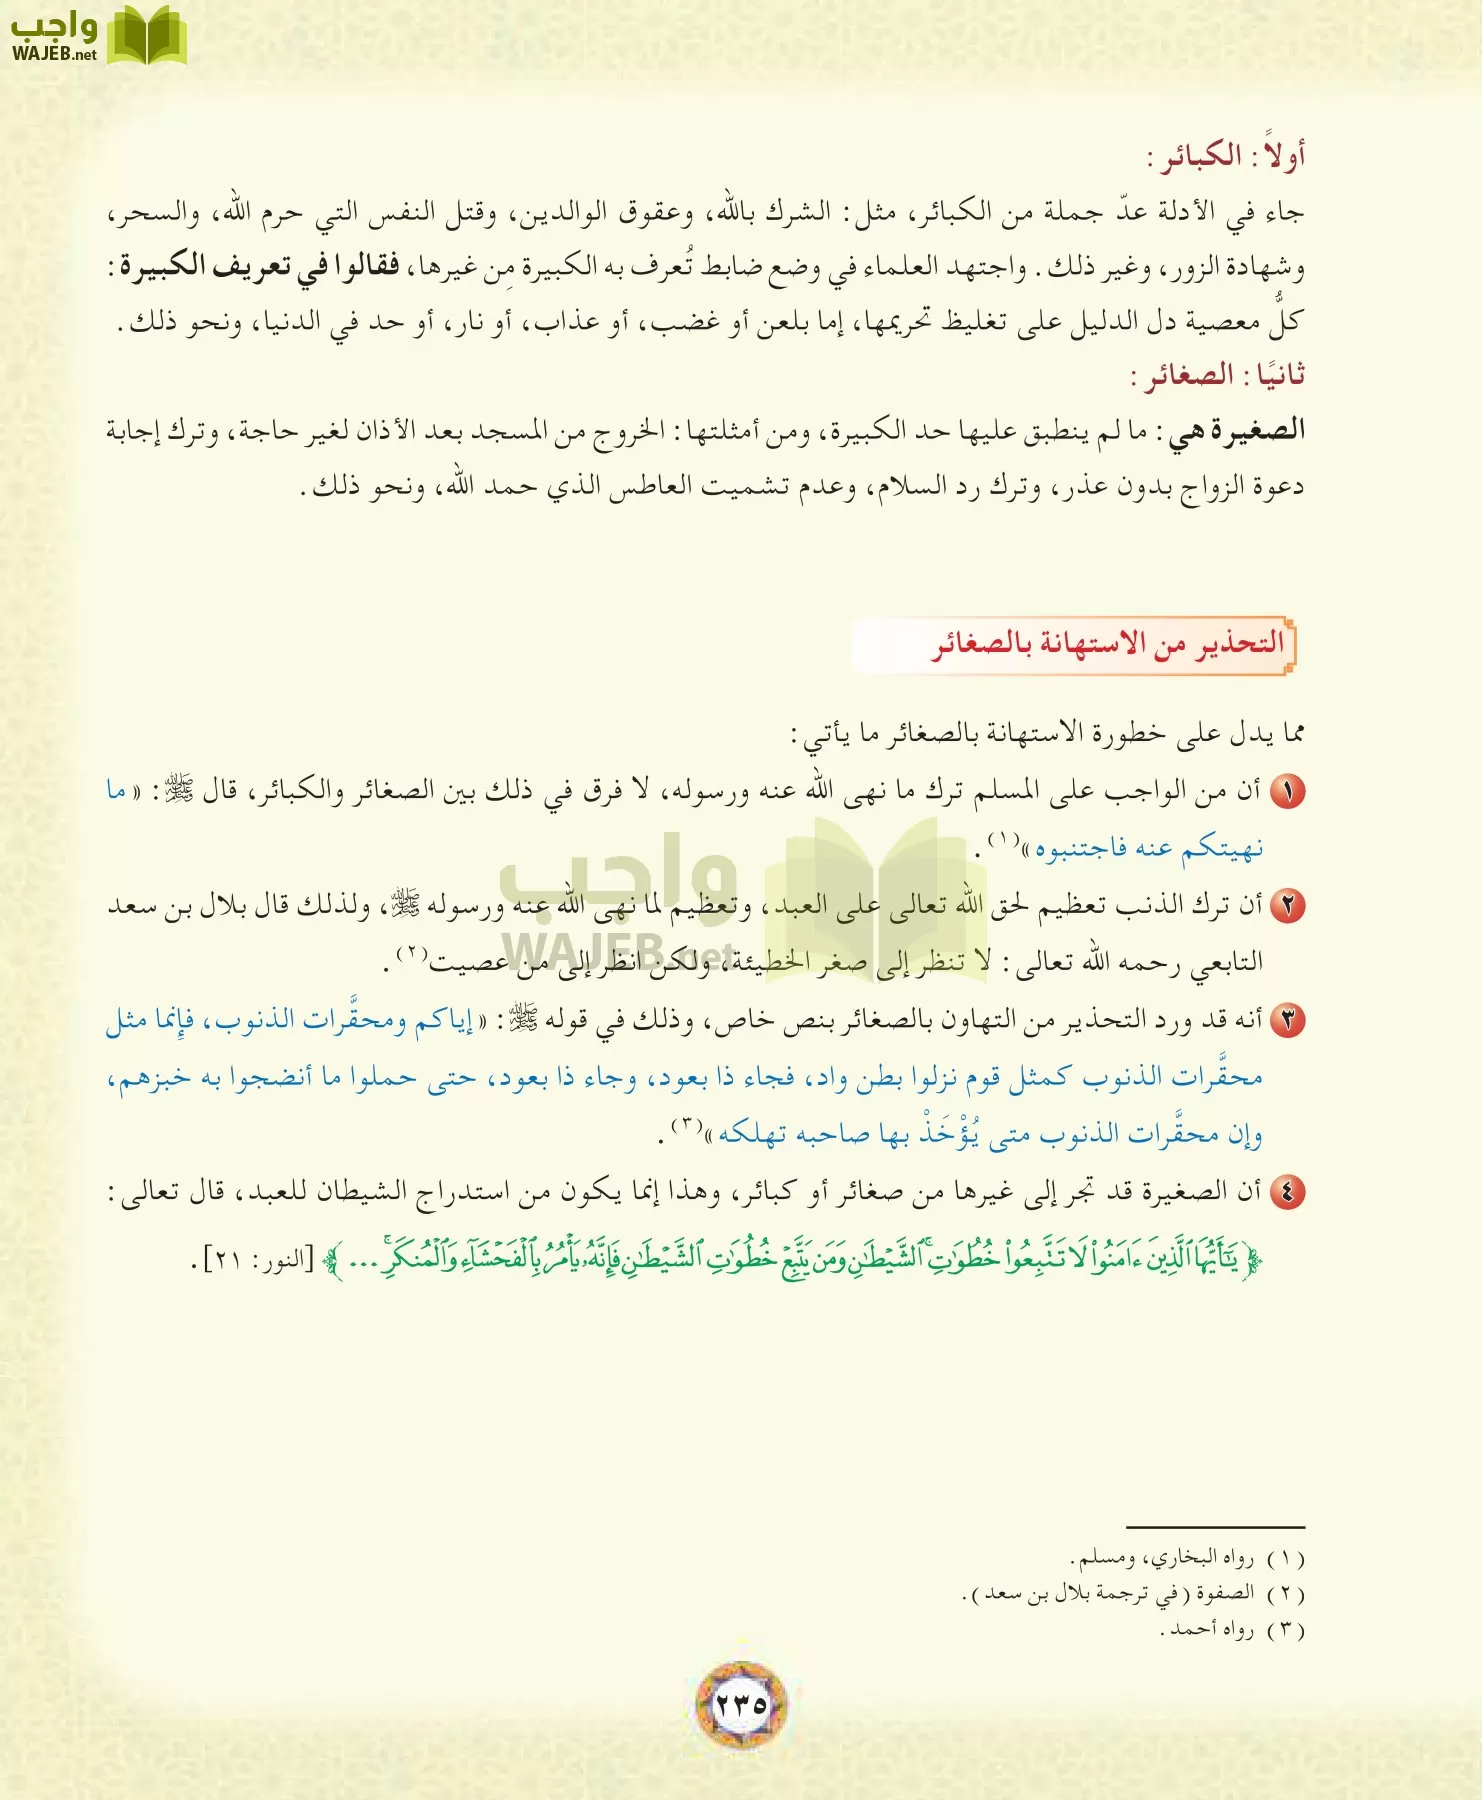 واجب
WAJEB.net
أولاً: الكبائر:
جاء في الأدلة عدّ جملة من الكبائر، مثل: الشرك بالله، وعقوق الوالدين، وقتل النفس التي حرم الله، والسحر،
وشهادة الزور، وغير ذلك. واجتهد العلماء في وضع ضابط تُعرف به الكبيرة مِن غيرها، فقالوا في تعريف الكبيرة:
كلُّ معصية دل الدليل على تغليظ تحريمها، إما بلعن أو غضب، أو عذاب، أو نار، أو حد في الدنيا، ونحو ذلك.
ثانيًا: الصغائر:
الصغيرة هي: ما لم ينطبق عليها حد الكبيرة، ومن أمثلتها: الخروج من المسجد بعد الأذان لغير حاجة، وترك إجابة
دعوة الزواج بدون عذر، وترك رد السلام، وعدم تشميت العاطس الذي حمد الله، ونحو ذلك.
التحذير من الاستهانة بالصغائر
مما يدل على خطورة الاستهانة بالصغائر ما يأتي:
١ أن من الواجب على المسلم ترك ما نهى الله عنه ورسوله، لا فرق في ذلك بين الصغائر والكبائر، قال ﷺ: «ما
نهيتكم عنه فاجتنبوه»(١).
٢ أن ترك الذنب تعظيم لحق الله تعالى على العبد، وتعظيم لما نهى الله عنه ورسوله ﷺ، ولذلك قال بلال بن سعد
التابعي رحمه الله تعالى: لا تنظر إلى صغر الخطيئة، ولكن انظر إلى من عصيت(٢).
٣ أنه قد ورد التحذير من التهاون بالصغائر بنص خاص، وذلك في قوله ﷺ: «إياكم ومحقَّرات الذنوب، فإنما مثل
محقَّرات الذنوب كمثل قوم نزلوا بطن واد، فجاء ذا بعود، وجاء ذا بعود، حتى حملوا ما أنضجوا به خبزهم،
وإن محقَّرات الذنوب متى يُؤْخَذْ بها صاحبه تهلكه»(٣).
٤ أن الصغيرة قد تجر إلى غيرها من صغائر أو كبائر، وهذا إنما يكون من استدراج الشيطان للعبد، قال تعالى:
﴿يَٰٓأَيُّهَا ٱلَّذِينَ ءَامَنُوا۟ لَا تَتَّبِعُوا۟ خُطُوَٰتِ ٱلشَّيْطَٰنِ ۚ وَمَن يَتَّبِعْ خُطُوَٰتِ ٱلشَّيْطَٰنِ فَإِنَّهُۥ يَأْمُرُ بِٱلْفَحْشَآءِ وَٱلْمُنكَرِ ۚ ...﴾ [النور: ٢١].
واجب
WAJEB.net
(١) رواه البخاري، ومسلم.
(٢) الصفوة (في ترجمة بلال بن سعد).
(٣) رواه أحمد.
٢٣٥